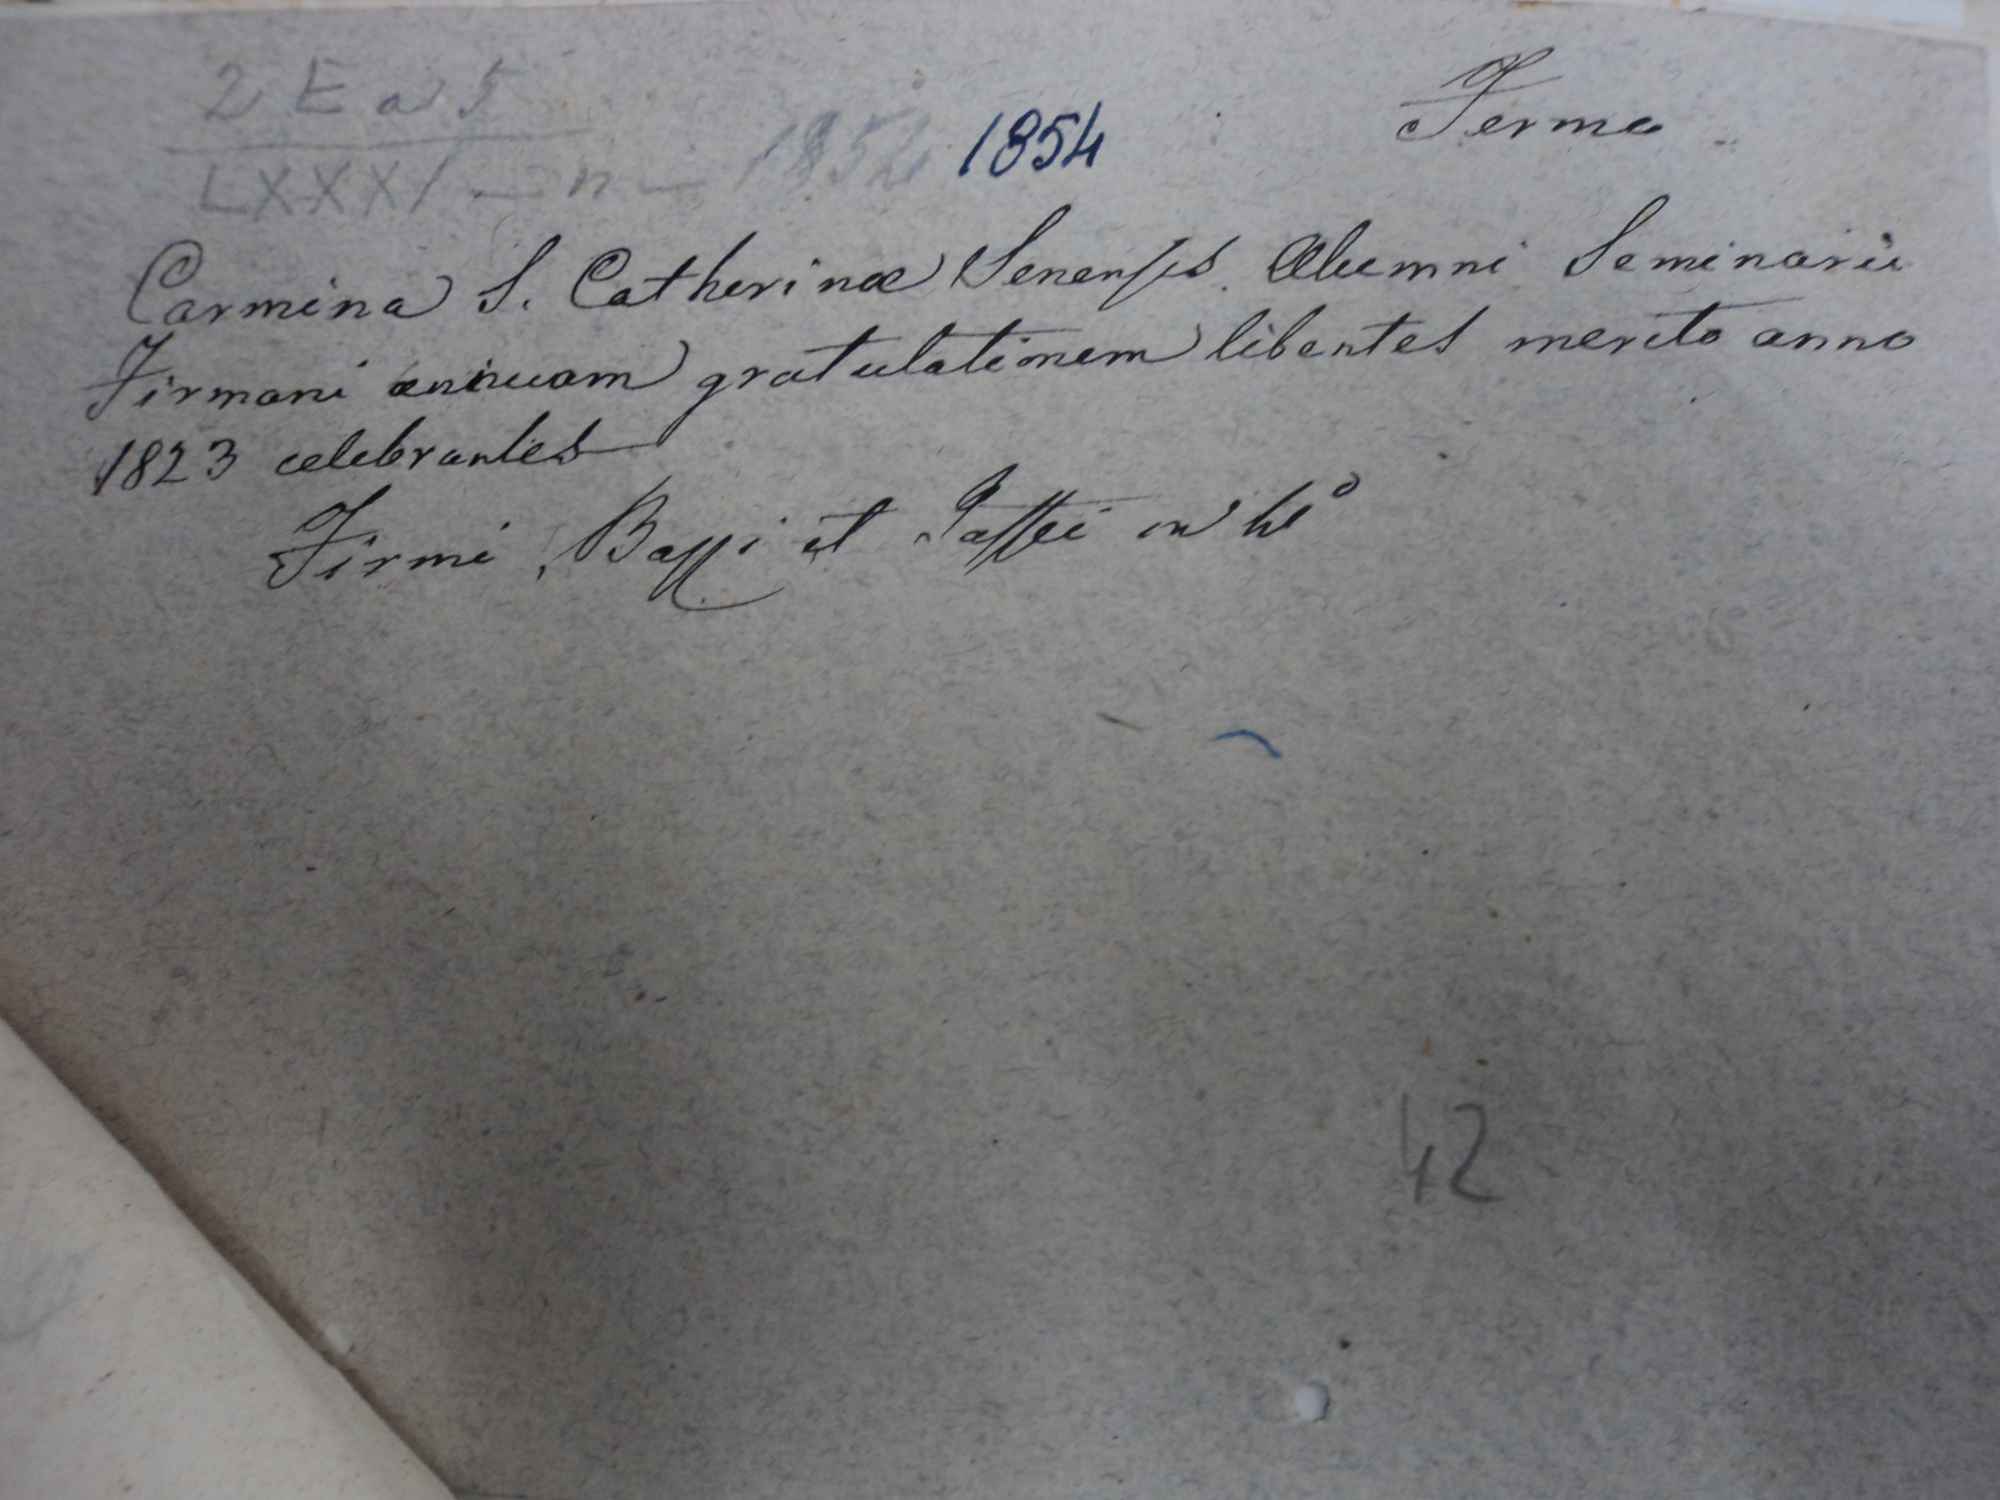 2 E a 5
LXXXI — n — 1854 1854
Fermo
Carmina S. Catherinæ Senensis Alumni Seminarii
Firmani annuam gratulationem libentes merito anno
1823 celebrantes
Firmi, Bassi et
42